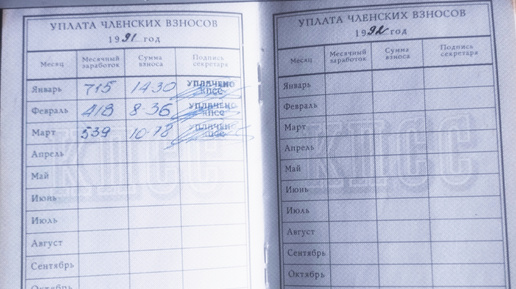 УПЛАТА ЧЛЕНСКИХ ВЗНОСОВ
1991 год
Месяц Месячный заработок Сумма взноса Подпись секретаря
Январь 715 14-30 УПЛАЧЕНО КПСС
Февраль 418 8-36 УПЛАЧЕНО КПСС
Март 539 10-78 УПЛАЧЕНО КПСС
Апрель
Май
Июнь
Июль
Август
Сентябрь
Октябрь
КПСС
УПЛАТА ЧЛЕНСКИХ ВЗНОСОВ
1992 год
Месяц Месячный заработок Сумма взноса Подпись секретаря
Январь
Февраль
Март
Апрель
Май
Июнь
Июль
Август
Сентябрь
Октябрь
КПСС